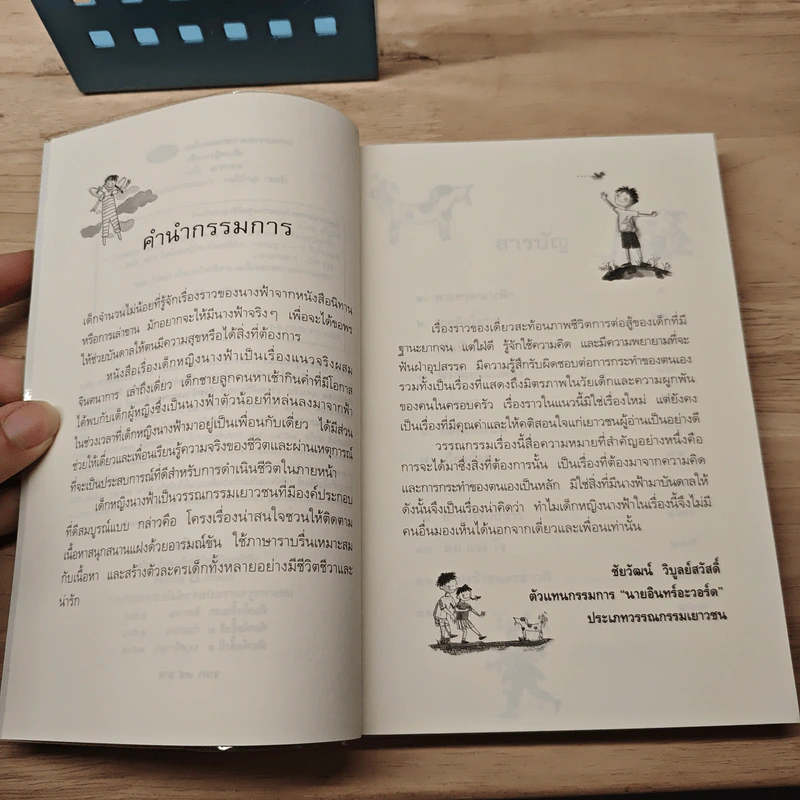 คำนำกรรมการ
เด็กจำนวนไม่น้อยที่รู้จักเรื่องราวของนางฟ้าจากหนังสือนิทาน
หรือการเล่าขาน มักอยากจะให้มีนางฟ้าจริงๆ เพื่อจะได้ขอพร
ให้ช่วยบันดาลให้ตนมีความสุขหรือได้สิ่งที่ต้องการ
หนังสือเรื่องเด็กหญิงนางฟ้าเป็นเรื่องแนวจริงผสม
จินตนาการ เล่าถึงเดี่ยว เด็กชายลูกคนหาเช้ากินค่ำที่มีโอกาส
ได้พบกับเด็กผู้หญิงซึ่งเป็นนางฟ้าตัวน้อยที่หล่นลงมาจากฟ้า
ในช่วงเวลาที่เด็กหญิงนางฟ้ามาอยู่เป็นเพื่อนกับเดี่ยว ได้มีส่วน
ช่วยให้เดี่ยวและเพื่อนเรียนรู้ความจริงของชีวิตและผ่านเหตุการณ์
ที่จะเป็นประสบการณ์ที่ดีสำหรับการดำเนินชีวิตในภายหน้า
เด็กหญิงนางฟ้าเป็นวรรณกรรมเยาวชนที่มีองค์ประกอบ
ที่ดีสมบูรณ์แบบ กล่าวคือ โครงเรื่องน่าสนใจชวนให้ติดตาม
เนื้อหาสนุกสนานแฝงด้วยอารมณ์ขัน ใช้ภาษาราบรื่นเหมาะสม
กับเนื้อหา และสร้างตัวละครเด็กทั้งหลายอย่างมีชีวิตชีวาและ
น่ารัก
สารบัญ
เรื่องราวของเดี่ยวสะท้อนภาพชีวิตการต่อสู้ของเด็กที่มี
ฐานะยากจน แต่ใฝ่ดี รู้จักใช้ความคิด และมีความพยายามที่จะ
ฟันฝ่าอุปสรรค มีความรู้สึกรับผิดชอบต่อการกระทำของตนเอง
รวมทั้งเป็นเรื่องที่แสดงถึงมิตรภาพในวัยเด็กและความผูกพัน
ของคนในครอบครัว เรื่องราวในแนวนี้มิใช่เรื่องใหม่ แต่ยังคง
เป็นเรื่องที่มีคุณค่าและให้คติสอนใจแก่เยาวชนผู้อ่านเป็นอย่างดี
วรรณกรรมเรื่องนี้สื่อความหมายที่สำคัญอย่างหนึ่งคือ
การจะได้มาซึ่งสิ่งที่ต้องการนั้น เป็นเรื่องที่ต้องมาจากความคิด
และการกระทำของตนเองเป็นหลัก มิใช่สิ่งที่มีนางฟ้ามาบันดาลให้
ดังนั้นจึงเป็นเรื่องน่าคิดว่า ทำไมเด็กหญิงนางฟ้าในเรื่องนี้จึงไม่มี
คนอื่นมองเห็นได้นอกจากเดี่ยวและเพื่อนเท่านั้น
ชัยวัฒน์ วิบูลย์สวัสดิ์
ตัวแทนกรรมการ “นายอินทร์อะวอร์ด”
ประเภทวรรณกรรมเยาวชน